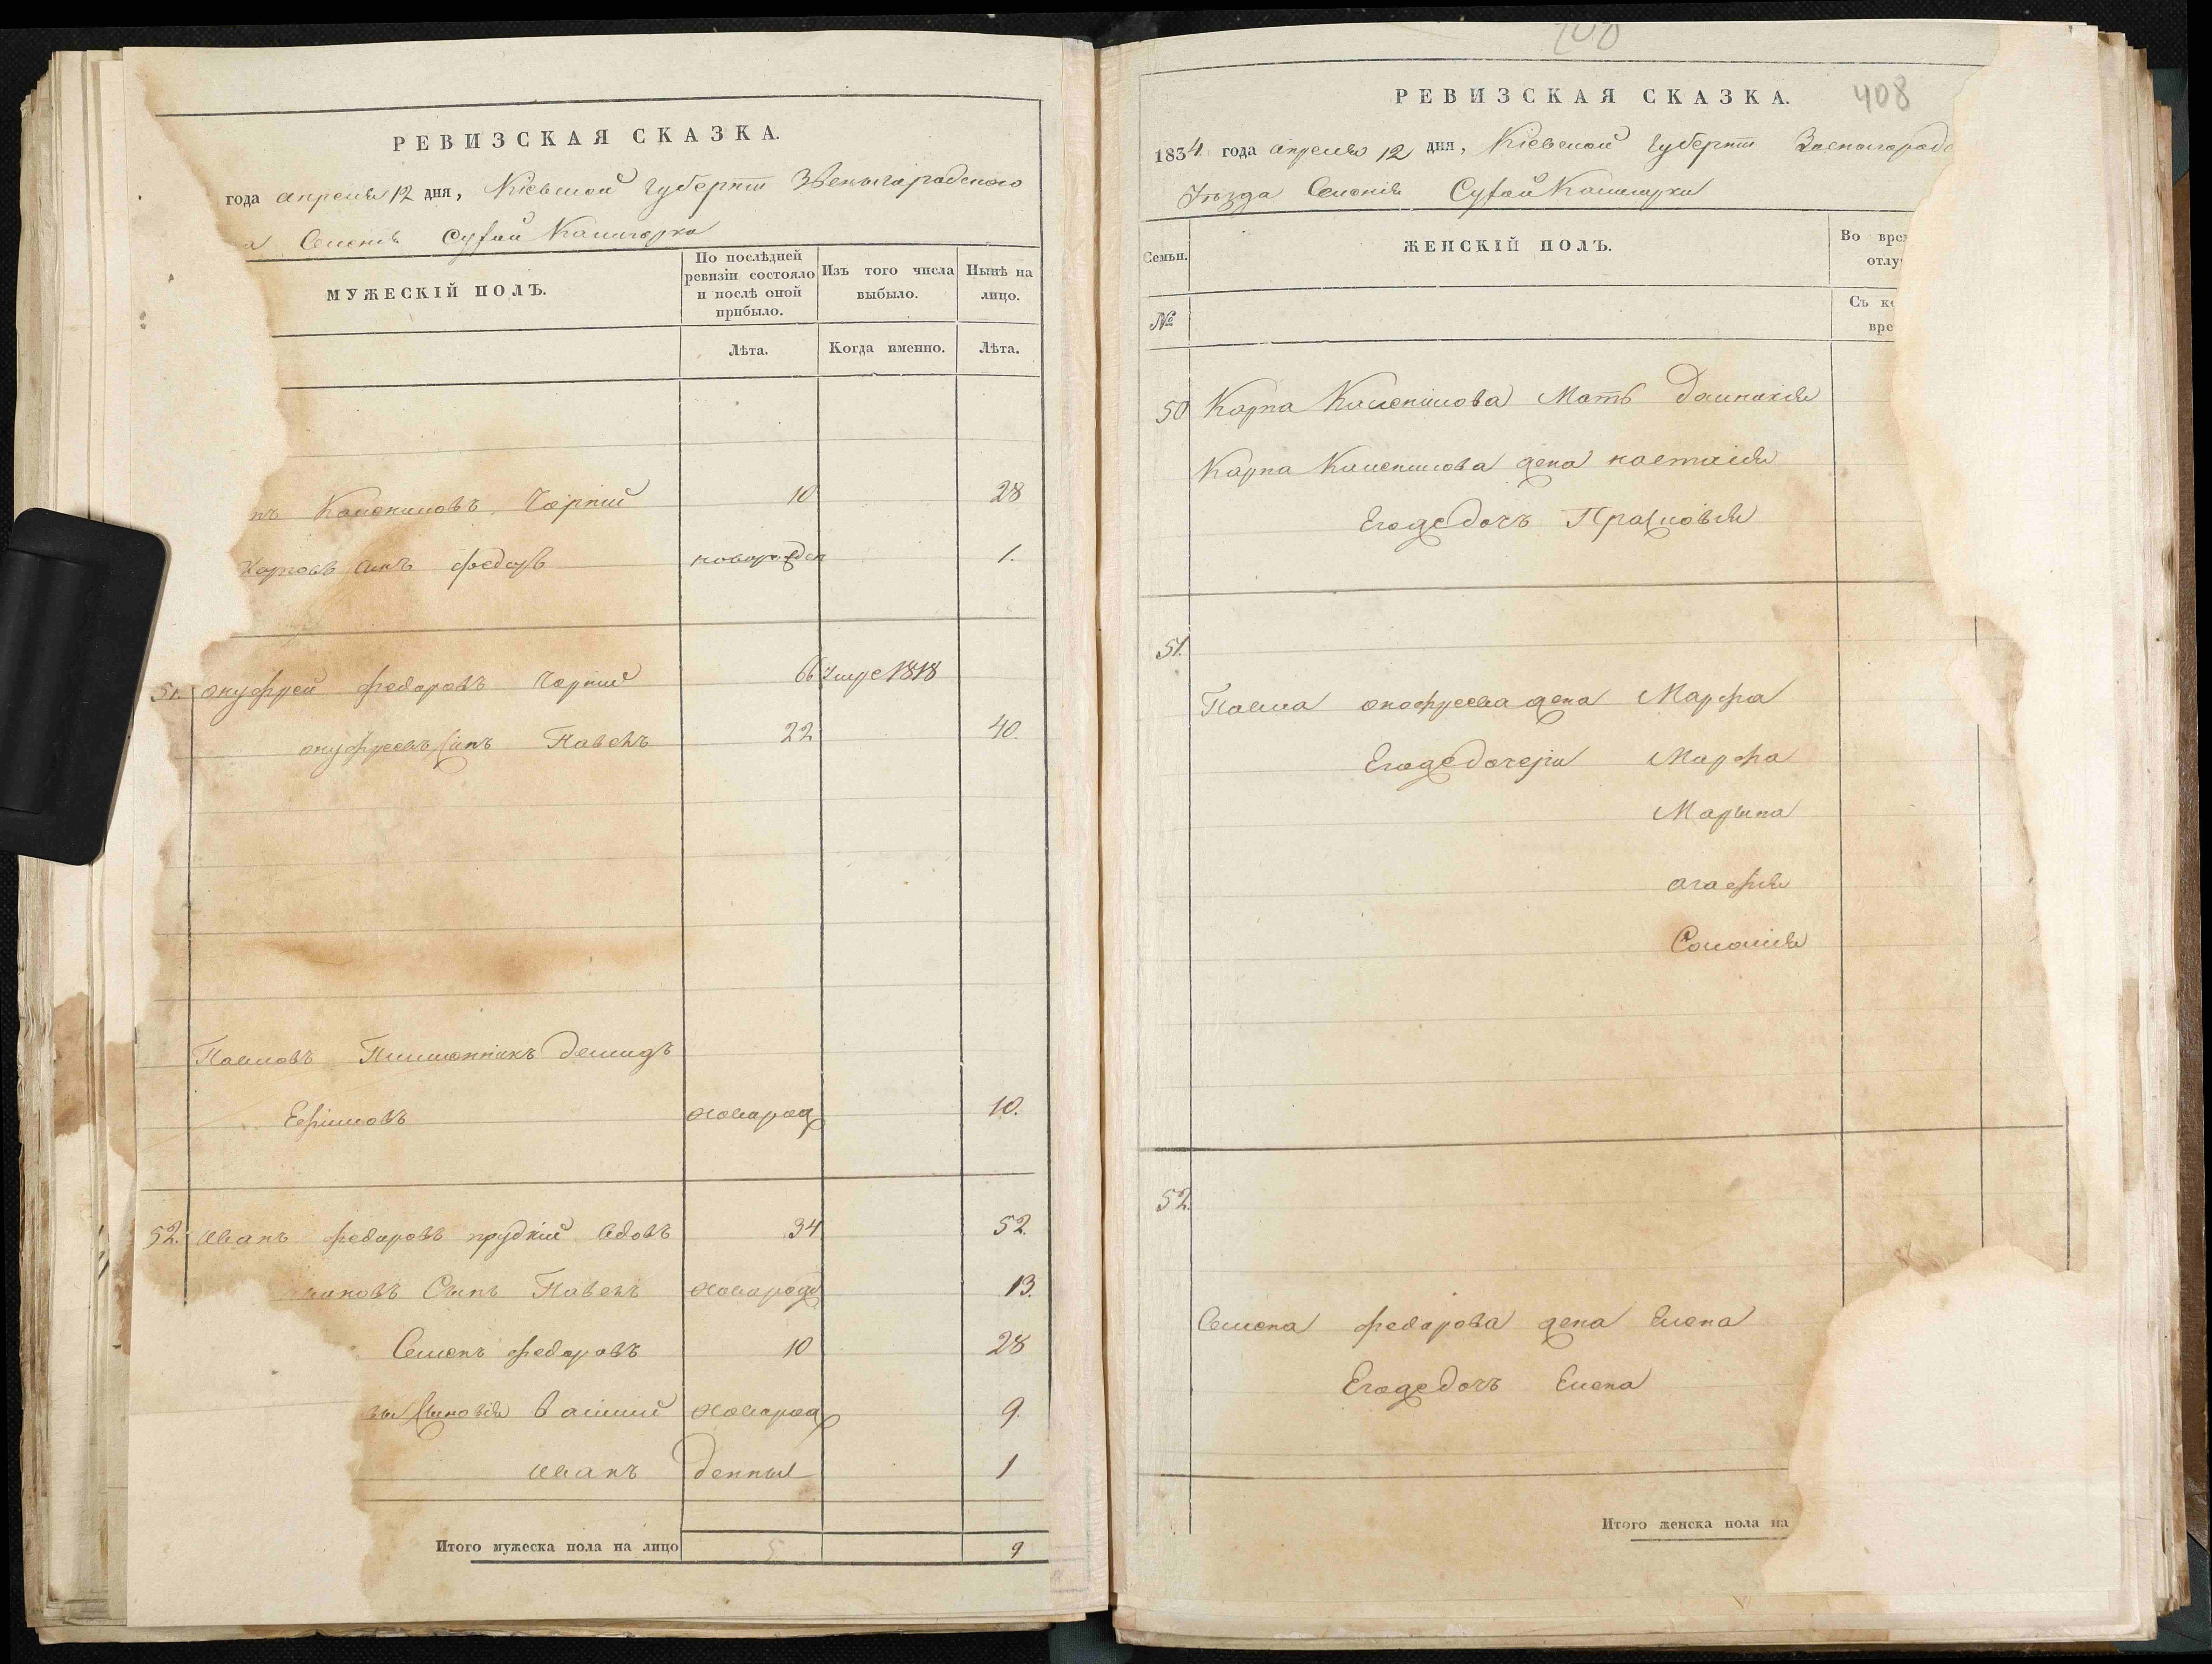 РЕВИЗСКАЯ СКАЗКА.
года апреля 12 дня, Кіевской губерніи Звенигородского
а Селенія Сухой Калигорки
МУЖЕСКІЙ ПОЛЪ.
По послѣдней ревизіи состояло и послѣ оной прибыло.
Изъ того числа выбыло.
Нынѣ на лицо.
Лѣта.
Когда именно.
Лѣта.
пъ Калениковъ Чорній 10 28
Карповъ синъ Федоръ новорожден 1.
51. Онуфрей Федоровъ Чорній 66 Умре 1818
онуфреевъ синъ Павелъ 22 40.
Павловъ Племенникъ Демидъ
Ефімовъ новорож 10.
52. Иванъ Федоровъ прудкій вдовъ 34 52.
Сынъ Павелъ новорож 13.
Семенъ Федоровъ 10 28
новорож 9.
Иванъ денны 1
Итого мужеска пола на лицо 9
408
РЕВИЗСКАЯ СКАЗКА.
1834 года апреля 12 дня, Кіевской губерніи Звенигородс
Уѣзда Селенія Сухой Калигорки
Семьи.
ЖЕНСКІЙ ПОЛЪ.
Во врем
отлу
№
Съ ко
вре
50 Карпа Каленикова Мать Домникія
Карпа Каленикова жена настасія
Егоже дочъ Прасковія
51.
Павла онофреева жена Марфа
Егоже дочери Марфа
Марына
агафія
Соломія
52.
Семена Федорова жена Елена
Егоже дочъ Елена
Итого женска пола на